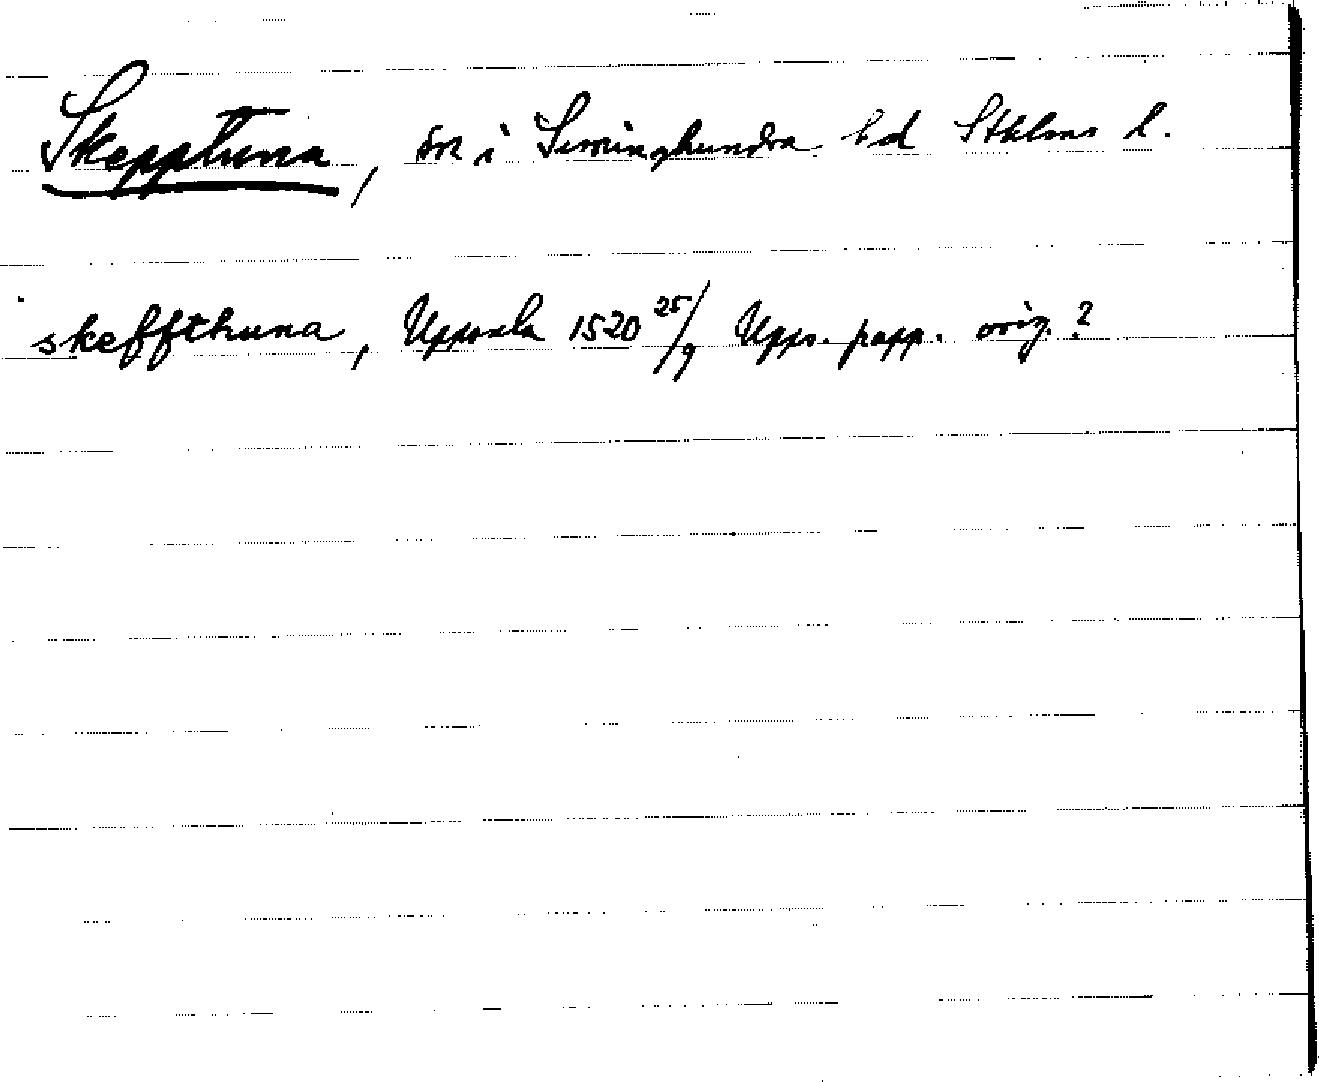 Skepptuna, sn i Seminghundra hd Sthlms l.
skeffthuna, Uppsala 1520 25/9 Upps. papp. orig. ?